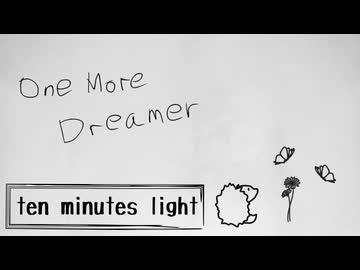 One More
Dreamer
ten minutes light